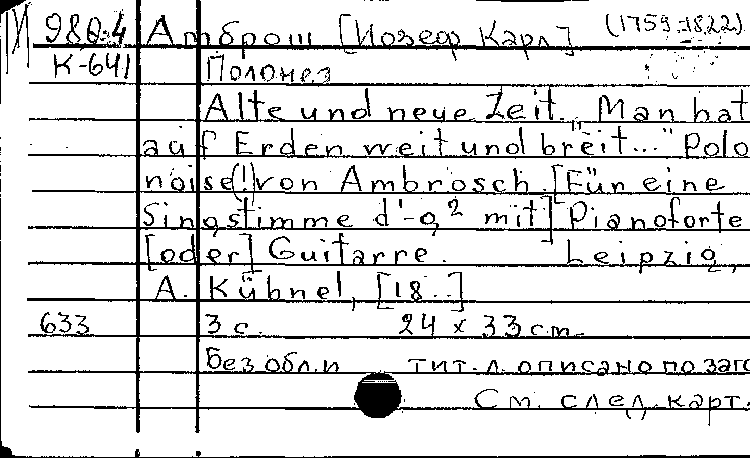 И 980.4 Амброш [Иозеф Карл] (1759-1822)
К-641 Полонез
Alte und neue Zeit. „Man hat
auf Erden weit und breit..." Polo
noise(!) von Ambrosch. [Für eine
Singstimme d'-g² mit] Pianoforte
[oder] Guitarre. Leipzig,
A. Kühnel, [18..]
633 3 с. 24 x 33 cm.
Без обл. и тит. л. описано по заго
См. след. карт.